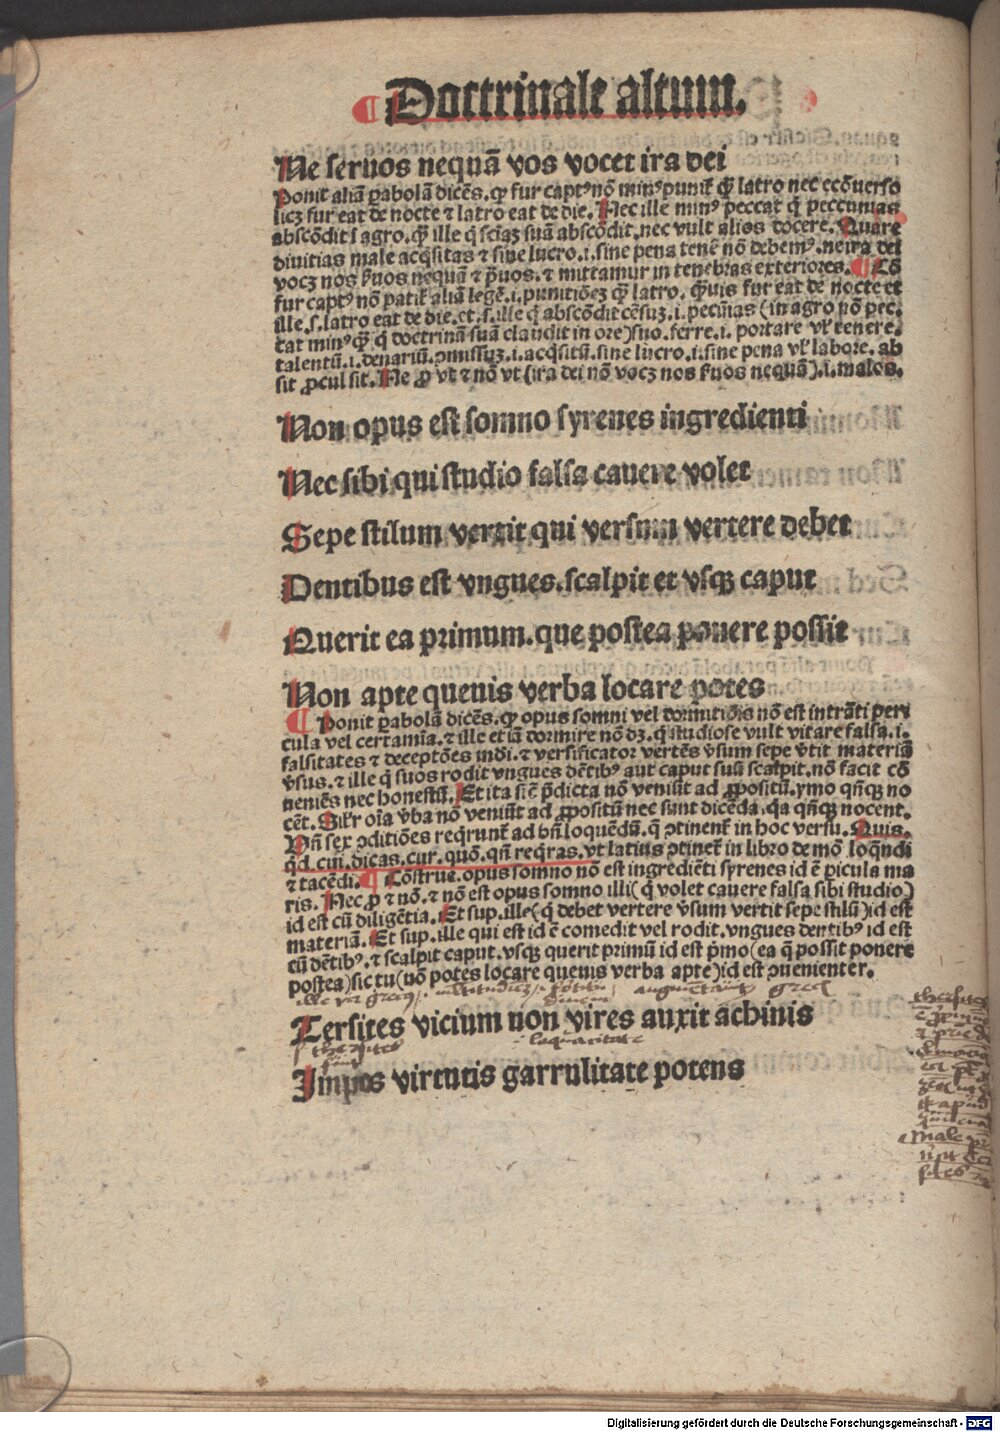 ¶ Doctrinale altum.
Ne seruos nequā vos vocet ira dei
Ponit aliā ꝑabolā dicēs. ꝙ fur captꝰ nō minꝰ punit̄ q̄ꝫ latro nec ecōuerso
licꝫ fur eat de nocte ⁊ latro eat de die. Nec ille minꝰ peccat q̄ peccunias
abscōdit ī agro. q̄ꝫ ille q̄ sciaꝫ suā abscōdit. nec vult alios docere. Quare
diuitias male acq̄sitas ⁊ sine lucro .i. sine pena tenē nō debemꝰ. ne ira dei
vocꝫ nos ẜuos nequā ⁊ p̄uos. ⁊ mittamur in tenebras exteriores. ¶ Cō
fur captꝰ nō patit̄ aliā legē .i. punitiōeꝫ q̄ꝫ latro. q̄ꝫuis fur eat de nocte et
ille .s. latro eat de die. et .s. ille q̄ abscōdit cēsuꝫ .i. pecūias (in agro nō pec.
cat minꝰ q̄ꝫ q̄ doctrinā suā claudit in ore) suo. ferre .i. portare vl' tenere.
talentū .i. denariū. ꝯmissuꝫ .i. acq̄sitū. sine lucro .i. sine pena vl' labore. ab
sit ꝓcul sit. Ne ꝓ vt ⁊ nō vt (ira dei nō vocꝫ nos ẜuos nequā) .i. malos.
Non opus est somno syrenes ingredienti
Nec sibi qui studio falsa cauere volet
Sepe stilum vertit qui versum vertere debet
Dentibus est vngues. scalpit et vsqꝫ caput
Querit ea primum. que postea ponere possit
Non apte queuis verba locare potes
¶ Ponit ꝑabolā dicēs. ꝙ opus somni vel dormitiōis nō est intrāti peri
cula vel certamīa. ⁊ ille etiā dormire nō dꝫ. q̄ studiose vult vitare falsa .i.
falsitates ⁊ deceptōes mūdi. ⁊ versificator vertēs v̄sum sepe v̄tit materiā
v̄sus. ⁊ ille q̄ suos rodit vngues dētibꝰ aut caput suū scalpit. nō facit cō
ueniēs nec honestū. Et ita sic̄ p̄dicta nō veniūt ad ꝓpositū. ymo qn̄qꝫ no
cēt. Sil'r oīa v̄ba nō veniūt ad ꝓpositū nec sunt dicēda. q̄a qn̄qꝫ nocent.
Vn̄ sex ꝯditiōes req̄runt̄ ad bn̄ loquēdū. q̄ ꝯtinent̄ in hoc versu. Quis.
qd. cui. dicas. cur. quō. qn̄ req̄ras. vt latius ꝯtinet̄ in libro de mō loq̄ndi
⁊ tacēdi. ¶ Cōstrue. opus somno nō est ingrediēti syrenes id ē picula ma
ris. Nec ꝓ ⁊ nō. ⁊ nō est opus somno illi (q̄ volet cauere falsa sibi studio)
id est cū diligētia. Et sup. ille (q̄ debet vertere v̄sum vertit sepe stilū) id est
materiā. Et sup. ille qui est id ē comedit vel rodit. vngues dentibꝰ id est
cū dētibꝰ. ⁊ scalpit caput. vsqꝫ querit primū id est p̄mo (ea q̄ possit ponere
postea) sic tu (nō potes locare queuis verba apte) id est ꝯuenienter.
Tersites vicium non vires auxit achinis
loquacitate
Impos virtutis garrulitate potens
Digitalisierung gefördert durch die Deutsche Forschungsgemeinschaft - DFG